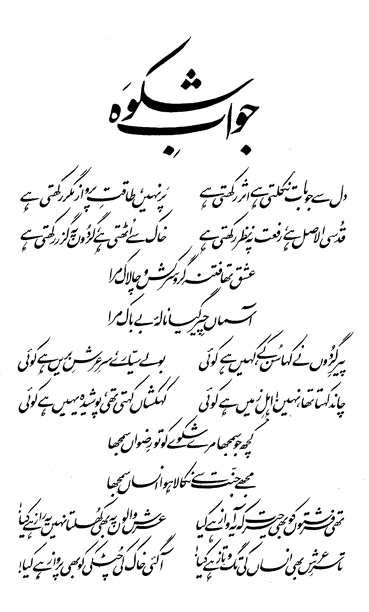 جوابِ شکوَہ
دل سے جو بات نکلتی ہے اثر رکھتی ہے پَر نہیں، طاقتِ پرواز مگر رکھتی ہے
قُدسی الاصل ہے، رفعت پہ نظر رکھتی ہے خاک سے اُٹھتی ہے گردُوں پہ گزر رکھتی ہے
عشق تھا فتنہ گر و سرکش و چالاک مرا
آسماں چِیر گیا نالۂ بے باک مرا
پیرِ گردُوں نے کہا سُن کے، کہیں ہے کوئی بولے سیّارے، سرِ عرشِ بریں ہے کوئی
چاند کہتا تھا، نہیں، اہلِ زمیں ہے کوئی کہکشاں کہتی تھی، پوشیدہ یہیں ہے کوئی
کچھ جو سمجھا مرے شکوے کو تو رِضواں سمجھا
مجھے جنّت سے نکالا ہوا انساں سمجھا
تھی فرشتوں کو بھی حیرت کہ یہ آواز ہے کیا عرش والوں پہ بھی کھُلتا نہیں یہ راز ہے کیا!
تا سرِ عرش بھی انساں کی تگ و تاز ہے کیا! آگئی خاک کی چُٹکی کو بھی پرواز ہے کیا!